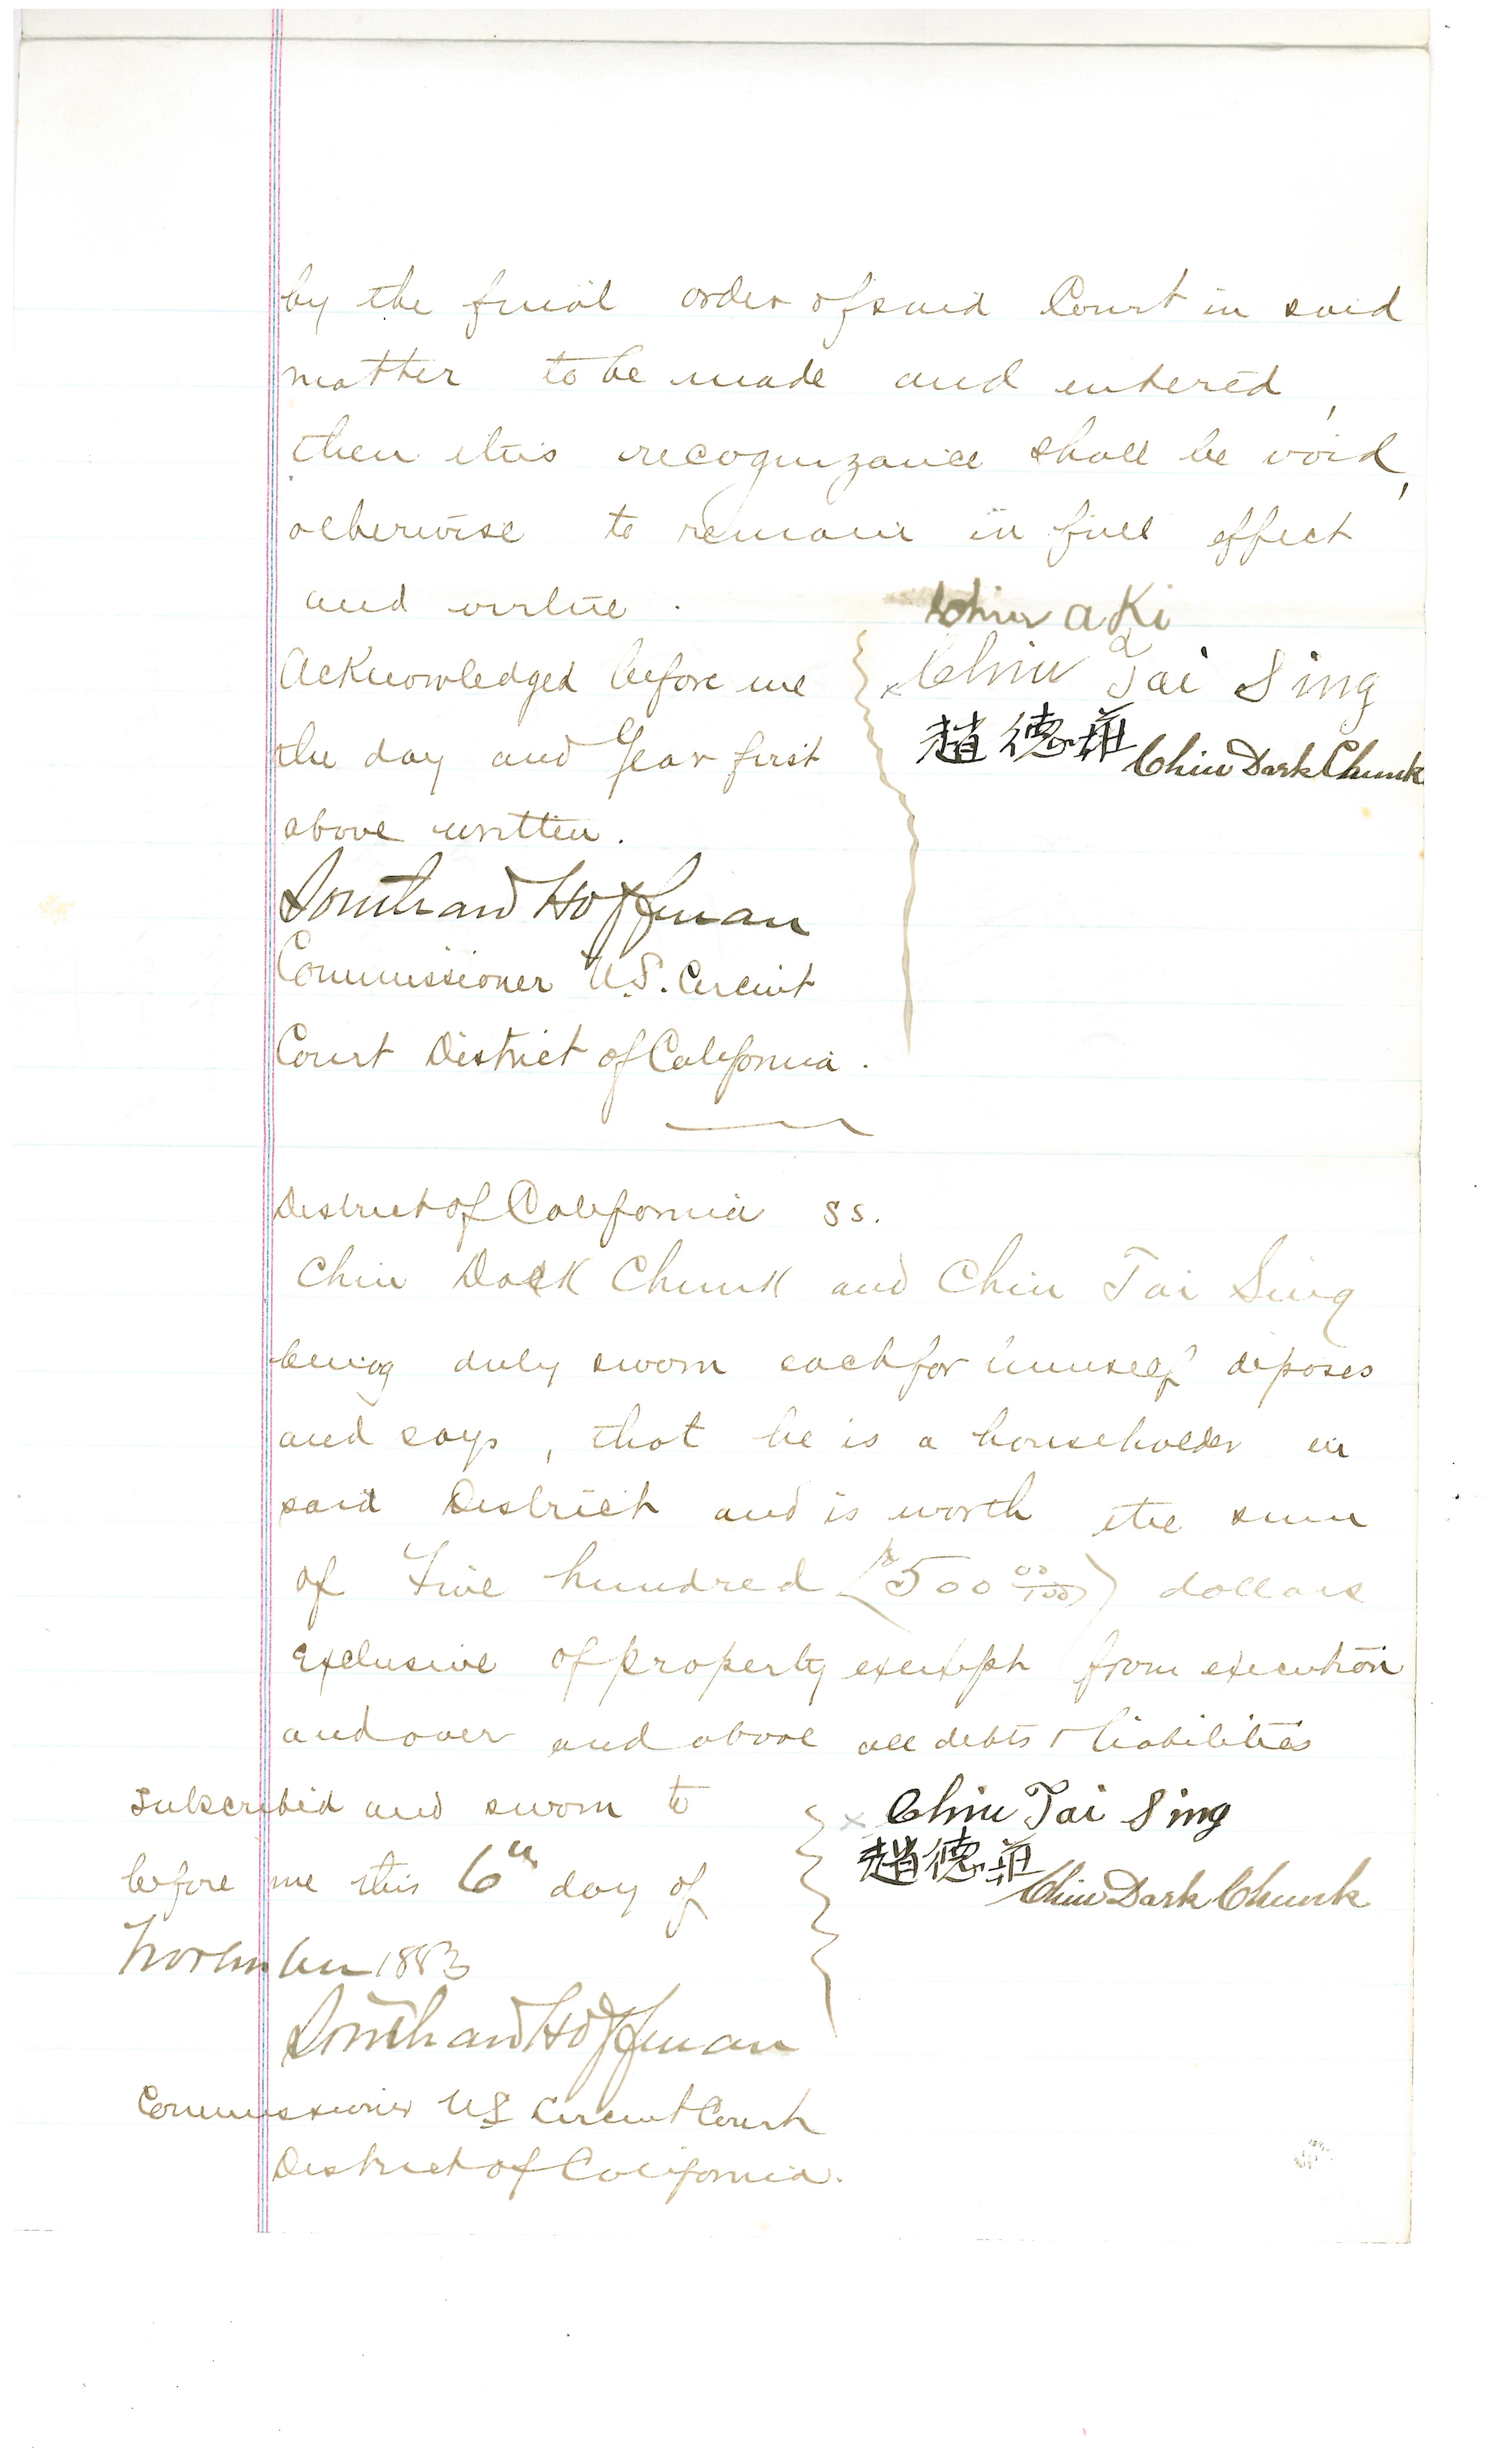 by the final order of said Court in said
matter to be made and entered,
then this recognizance shall be void,
otherwise to remain in full effect
and virtue.
Chiu a Ki
Acknowledged before me
x Chiu Tai Sing
the day and Year first
趙德 Chiu Dark Chunk
above written.
Southard Hoffman
Commissioner U.S. Circuit
Court District of California.
District of California ss.
Chiu Dock Chunk and Chiu Tai Sing
being duly sworn each for himself deposes
and says, that he is a householder in
said District and is worth the sum
of Five hundred ($500 00/100) dollars
exclusive of property exempt from execution
and over and above all debts & liabilities
Subscribed and sworn to
x Chiu Tai Sing
before me this 6th day of
趙德 Chiu Dark Chunk
November 1883
Southard Hoffman
Commissioner US Circuit Court
District of California.